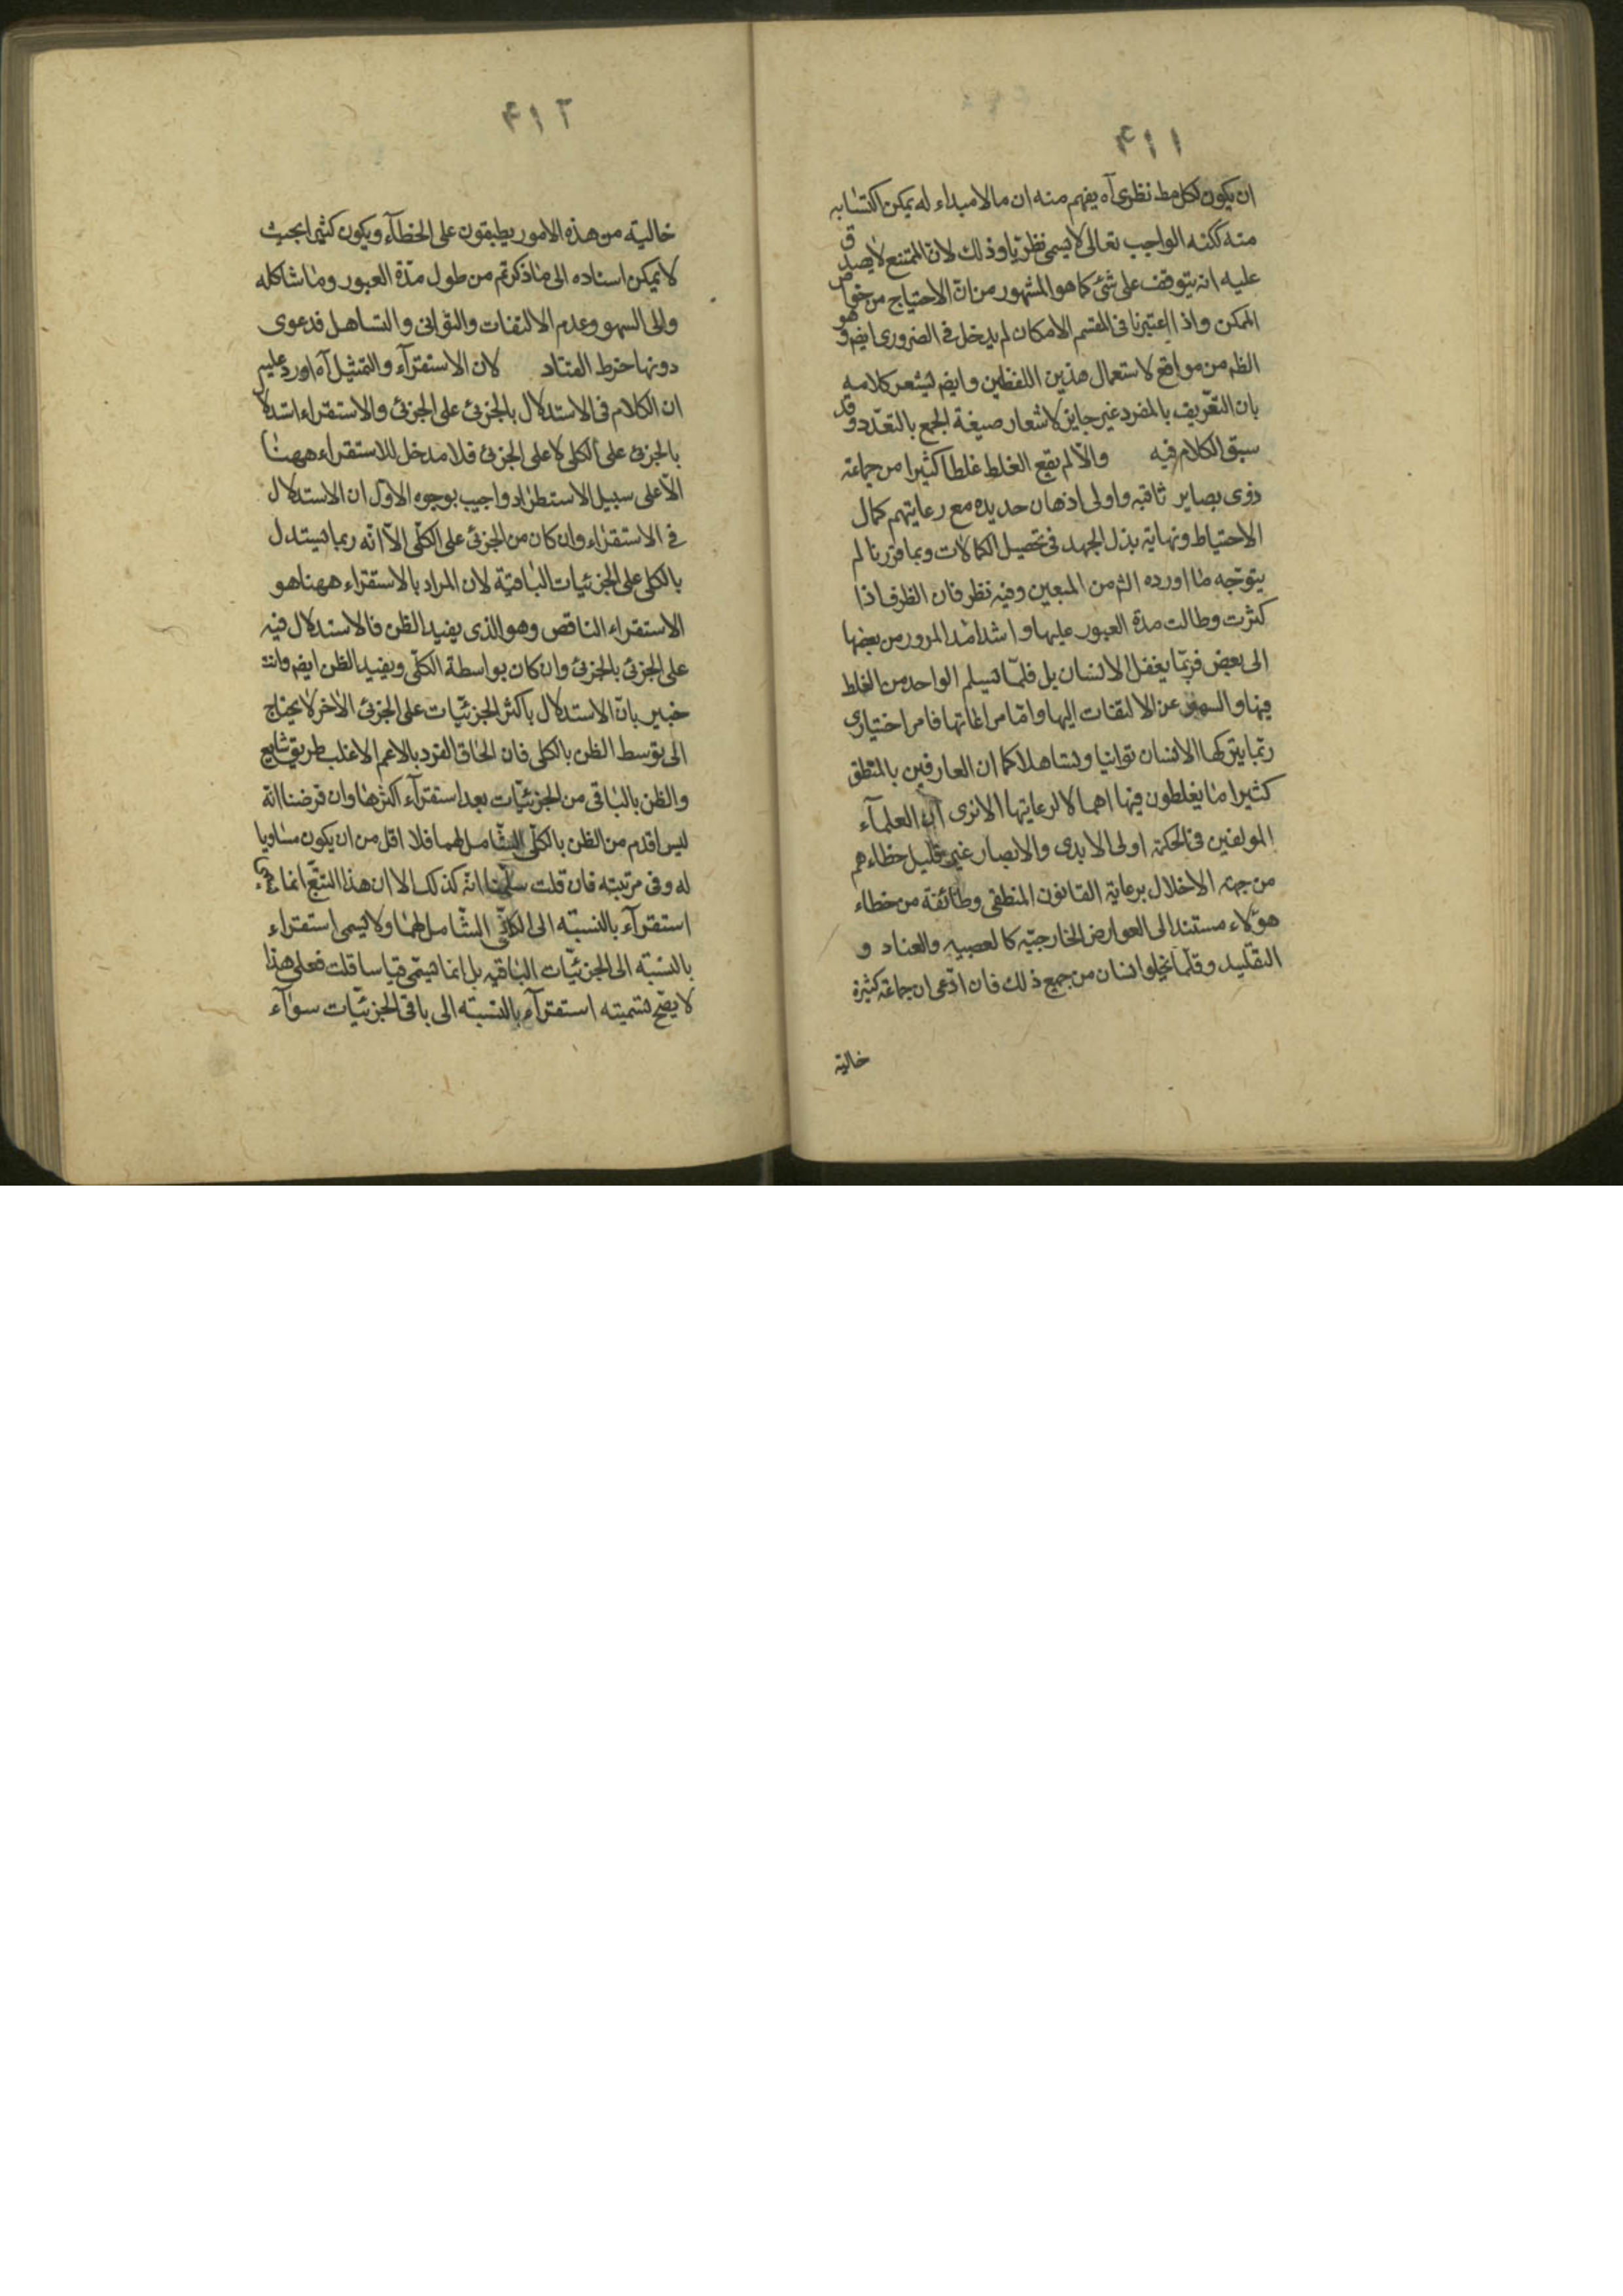 ۴۱۱
ان يكون لكل مط نظرى آه يفهم منه ان ما لا مبداء له يمكن اكتسابه
منه ككنه الواجب تعالى لا يسمى نظريا وذلك لان الممتنع لا يصدق
عليه انه يتوقف على شئ كما هو المشهور من ان الاحتياج من خواص
الممكن واذا اعتبرنا فى المقسم الامكان لم يدخل فى الضرورى ايضم وهو
الظم من مواقع لاستعمال هذين اللفظين وايضم ليشعر كلامه
بان التعريف بالمفرد غير جايز لاشعار صيغة الجمع بالتعدد وقد
سبق الكلام فيه والا لم يقع الغلط غلطا كثيرا من جماعة
ذوى بصاير ثاقبه واولى اذهان حديده مع رعايتهم كمال
الاحتياط ونهاية بذل الجهد فى تحصيل الكمالات وبما قررنا لم
يتوجه ما اورده الشم من المتبعين وفيه نظر فان الطرف اذا
كثرت وطالت مدة العبور عليها واشتد امتد المرور من بعضها
الى بعض فربما يغفل الانسان بل قلما تسلم الواحد من الغلط
فيها والسهو عن الالتفات اليها واما مراعاتها فامر اختيارى
ربما يتركها الانسان توانيا وتساهلا كما ان العارفين بالمنطق
كثيرا ما يغلطون فيها اهمالا لرعايتها الا ترى ان العلماء
المولفين فى الحكمة اولى الايدى والابصار غير قليل خطاءهم
من جهة الاخلال برعاية القانون المنطقى وطائفة من خطاء
هؤلاء مستندا الى العوارض الخارجيه كالعصبيه والعناد و
التقليد وقلما يخلو انسان من جميع ذلك فان ادعى ان جماعة كثيرة
خالية
۴۱۲
خالية من هذه الامور يطبقون على الخطاء ويكون كثيرا بحيث
لا يمكن اسناده الى ما ذكرتم من طول مدة العبور وما شاكله
والى السهو وعدم الالتفات والتوانى والتساهل فدعوى
دونها خرط القتاد لان الاستقراء والتمثيل آه اورد عليه
ان الكلام فى الاستدلال بالجزئى على الجزئى والاستقراء استدلال
بالجزئى على الكلى لا على الجزئى فلا مدخل للاستقراء ههنا
الا على سبيل الاستطراد واجيب بوجوه الاول ان الاستدلال
فى الاستقراء وان كان من الجزئى على الكلى الا انه ربما يستدل
بالكلى على الجزئيات الباقية لان المراد بالاستقراء ههنا هو
الاستقراء الناقص وهو الذى يفيد الظن فالاستدلال فيه
على الجزئى بالجزئى وان كان بواسطة الكلى ويفيد الظن ايضم وانت
خبير بان الاستدلال باكثر الجزئيات على الجزئى الاخر لا يحتاج
الى توسط الظن بالكلى فان الحاق الفرد بالاعم الاغلب طريق شايع
والظن بالباقى من الجزئيات بعد استقراء اكثرها وان فرضنا انه
ليس اقدم من الظن بالكلى الشامل لهما فلا اقل من ان يكون مساويا
له وفى مرتبته فان قلت سلمنا انه كذلك الا ان هذا التتبع انما
استقراء بالنسبة الى الكلى الشامل لهما ولا يسمى استقراء
بالنسبة الى الجزئيات الباقيه بل انما يسمى قياسا قلت فعلى هذا
لا يصح تسميته استقراء بالنسبة الى باقى الجزئيات سواء